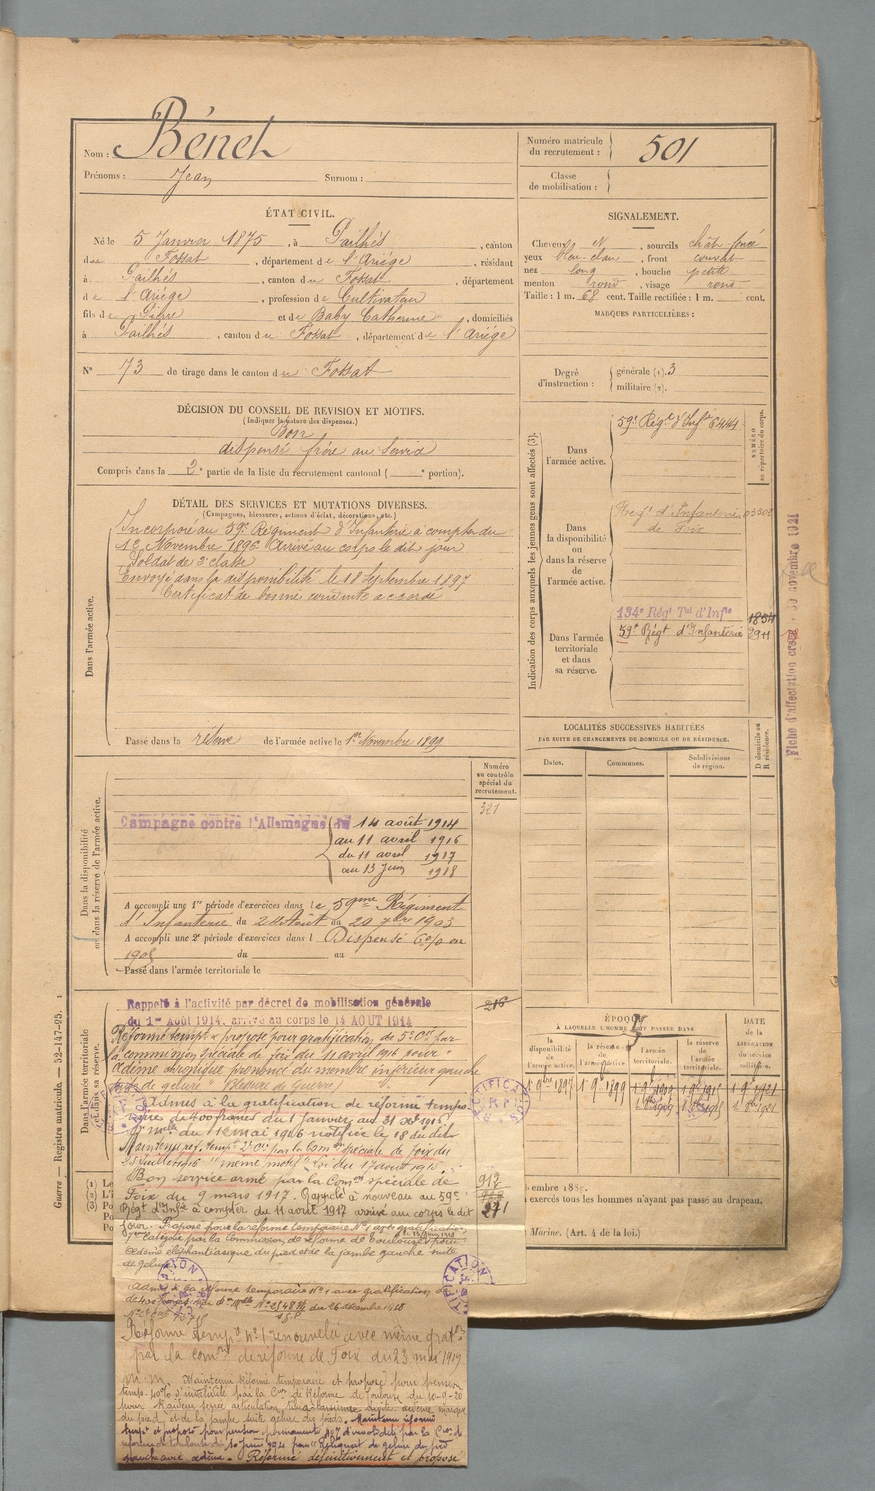 Nom : Bénet
Prénoms : Jean Surnom :
Numéro matricule du recrutement : 501
Classe de mobilisation :
ÉTAT CIVIL.
Né le 5 Janvier 1875, à Pailhés, canton
du Fossat, département de l'Ariége, résidant
à Pailhés, canton du Fossat, département
de l'Ariége, profession de Cultivateur
fils de Pierre et de Baby Catherine, domiciliés
à Pailhés, canton du Fossat, département de l'Ariége
N° 73 de tirage dans le canton du Fossat
SIGNALEMENT.
Cheveux N, sourcils chât foncé
yeux bleu clair, front couvert
nez long, bouche petite
menton rond, visage rond
Taille : 1 m. 68 cent. Taille rectifiée : 1 m. cent.
MARQUES PARTICULIÈRES :
Degré d'instruction : générale (1). 3
militaire (2).
DÉCISION DU CONSEIL DE REVISION ET MOTIFS.
(Indiquer la nature des dispenses.)
Bon
dispensé frère au service
Compris dans la 2e partie de la liste du recrutement cantonal ( e portion).
DÉTAIL DES SERVICES ET MUTATIONS DIVERSES.
(Campagnes, blessures, actions d'éclat, décorations, etc.)
Dans l'armée active.
Incorporé au 59e Régiment d'Infanterie à compter du
12 Novembre 1896 Arrivé au corps le dit jour
Soldat de 2e classe
Envoyé dans la disponibilité le 18 Septembre 1897
Certificat de bonne conduite accordé
Passé dans la réserve de l'armée active le 1er Novembre 1899
Indication des corps auxquels les jeunes gens sont affectés (3).
NUMÉRO au répertoire du corps.
Dans l'armée active.
59e Régt d'Infie 6444
Dans la disponibilité ou dans la réserve de l'armée active.
Regt d'Infanterie 03302
de Foix
Dans l'armée territoriale et dans sa réserve.
134e Régt Tal d'Infie 1854
59e Régt d'Infanterie 2911
Fiche d'affectation créée 30 novembre 1921
LOCALITÉS SUCCESSIVES HABITÉES
PAR SUITE DE CHANGEMENTS DE DOMICILE OU DE RÉSIDENCE.
Dates. Communes. Subdivisions de région. D domicile ou R résidence.
Numéro au contrôle spécial du recrutement.
321
Dans la disponibilité ou dans la réserve de l'armée active.
Campagne contre l'Allemagne du 14 août 1914
au 11 avril 1916
du 11 avril 1917
au 13 Juin 1918
A accompli une 1re période d'exercices dans le 59me Régiment
d'Infanterie du 24 Août au 20 7bre 1903
A accompli une 2e période d'exercices dans l Dispensé 6% en
1905 du au
Passé dans l'armée territoriale le
Dans l'armée territoriale et dans sa réserve.
Rappelé à l'activité par décret de mobilisation générale
du 1er Août 1914, arrivé au corps le 14 AOUT 1914
216
Réformé tempre & proposé pour gratification de 5e Cie par
la commission spéciale de foix du 11 avril 1916 pour
œdème chronique prononcé du membre inférieur gauche
de gelure" (Blessure de guerre)
Admis à la gratification de réforme tempo
raire de 400 francs du 1 Janvier au 31 Xbre 1916
du 11 mai 1916 notifiée le 18 du dit
Maintenu réf. tempre 2e Cie par la Comon spéciale de foix du
25 Juillet 1916 "même motif" loi du 17 août 1915.
Bon service armé par la Comon spéciale de
Foix du 9 mars 1917. Rappelé à nouveau au 59e
Régt d'Infie à compter du 11 août 1917 arrivé au corps le dit
jour. Proposé pour la réforme temporaire N°1 avec gratification
catégorie par la Commission de réforme de Toulouse pour
Œdème éléphantiasique du pied et de la jambe gauche suite
de gelure
912
271
Admis à la réforme temporaire N°1 avec gratification
du 26 décembre 1918
Réforme tempre n°1 renouvelée avec même grat.
par la comon de réforme de Foix du 23 mai 1919
Maintenu Réforme temporaire et proposé pour pension
temp. 40% d'invalidité par la Con de Réforme de Toulouse du 10-9-20
pour Raideur serrée articulation œdème marqué
du pied et de la jambe suite gelure des pieds. Maintenu réformé
tempre et proposé pour pension permanente par la Con de
réforme de Toulouse du 10 juin 1921 pour "Reliquat de gelure du pied
gauche avec œdème. Réformé définitivement et proposé
ÉPOQUE
À LAQUELLE L'HOMME DOIT PASSER DANS
la disponibilité de l'armée active. la réserve de l'armée active. l'armée territoriale. la réserve de l'armée territoriale. DATE DE LA LIBÉRATION du service militaire.
1 9bre 1897 1 9bre 1899
Guerre — Registre matricule. — 52-147-95.
exercés tous les hommes n'ayant pas passé au drapeau.
Marine. (Art. 4 de la loi.)